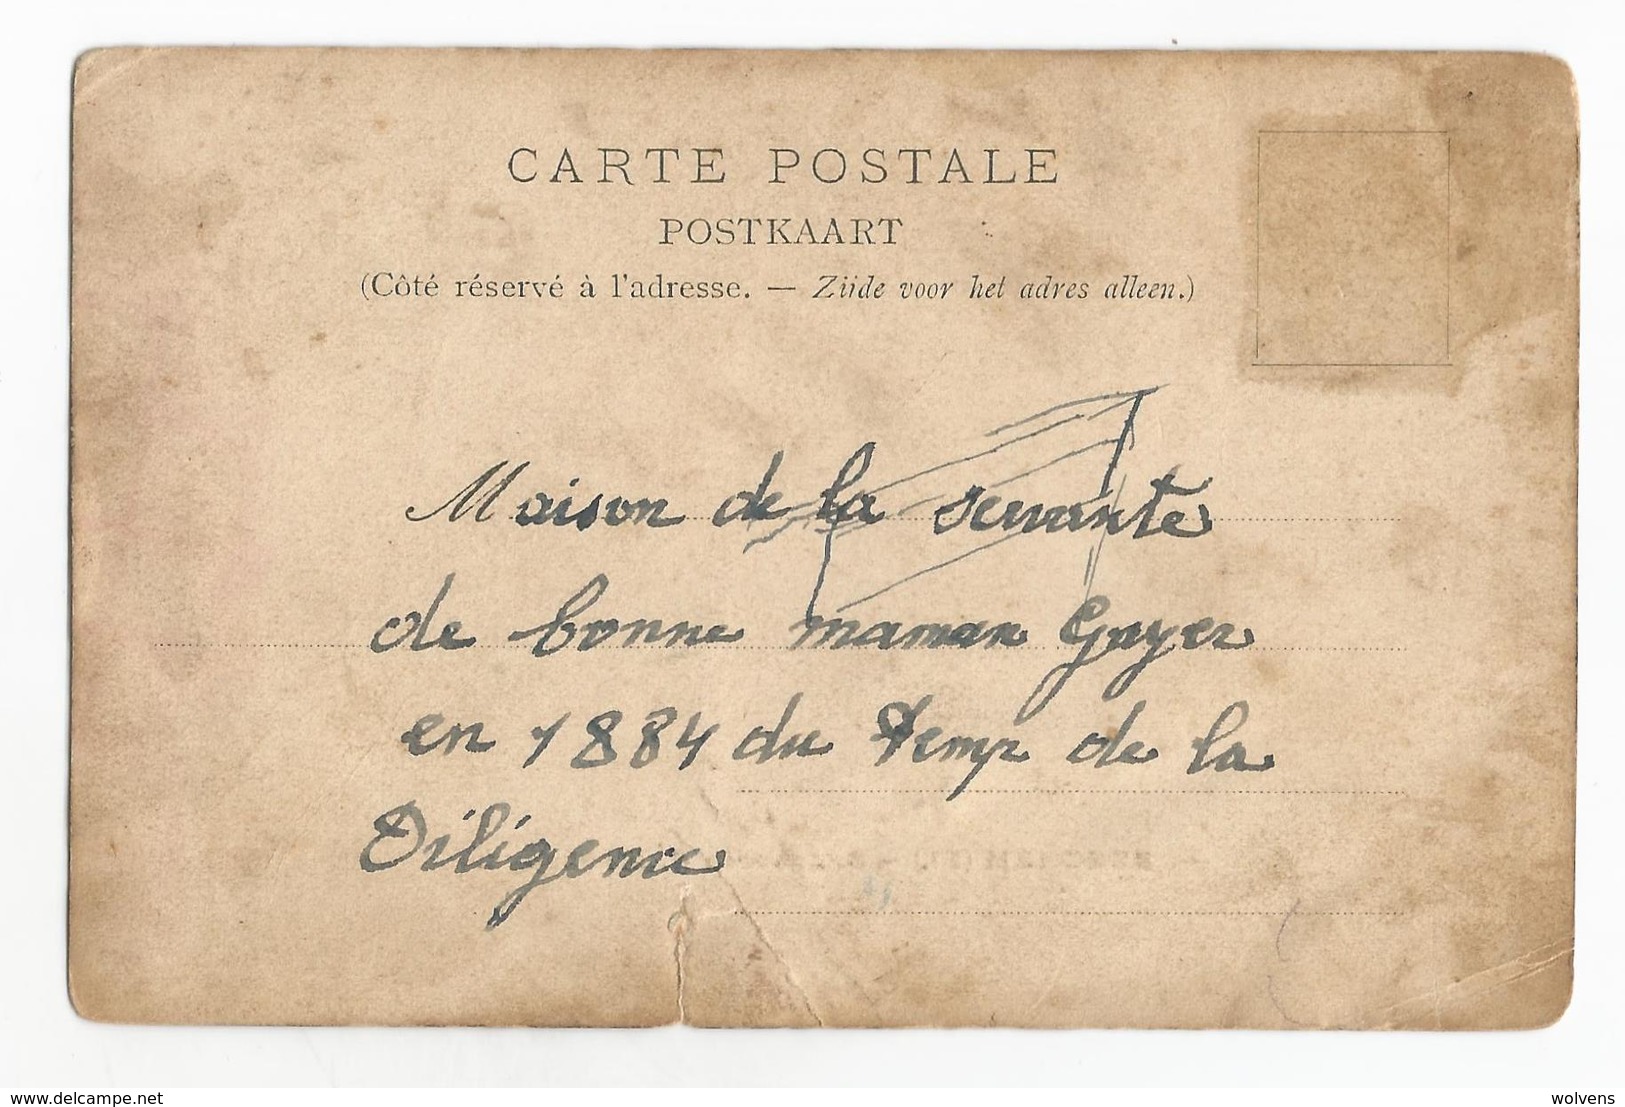 CARTE POSTALE
POSTKAART
(Côté réservé à l'adresse. — Zijde voor het adres alleen.)
Maison de la servante
de bonne maman Guyer
en 1884 du temps de la
Diligence
www.delcampe.net
wolvens